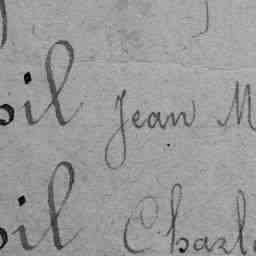 il Jean M
il Charl